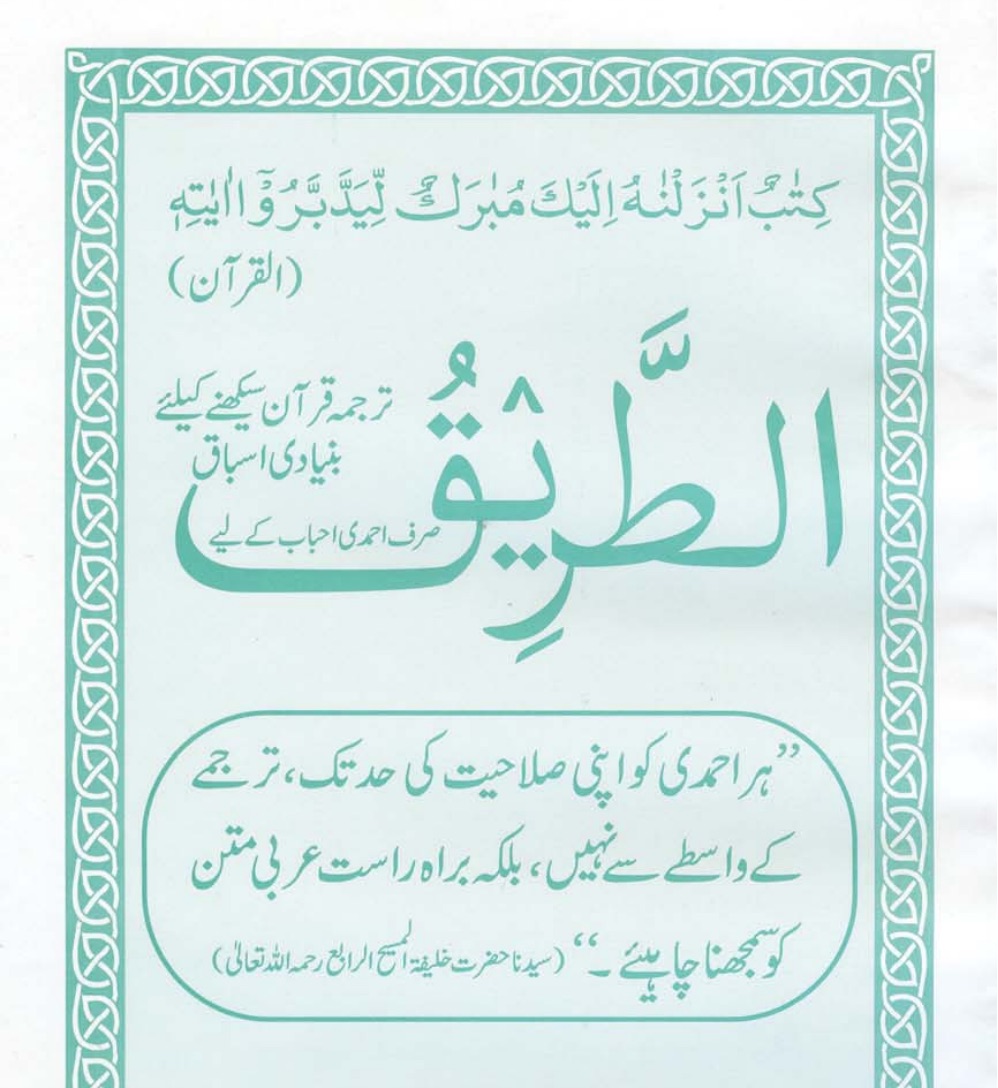 كِتٰبٌ اَنْزَلْنٰهُ اِلَيْكَ مُبٰرَكٌ لِّيَدَّبَّرُوْٓا اٰيٰتِهٖ
(القرآن)
الطَّرِيْقُ
ترجمہ قرآن سیکھنے کیلئے
بنیادی اسباق
صرف احمدی احباب کے لیے
”ہر احمدی کو اپنی صلاحیت کی حد تک، ترجمے
کے واسطے سے نہیں، بلکہ براہ راست عربی متن
کو سمجھنا چاہیئے ۔“ (سیدنا حضرت خلیفۃ المسیح الرابع رحمہ اللہ تعالیٰ)